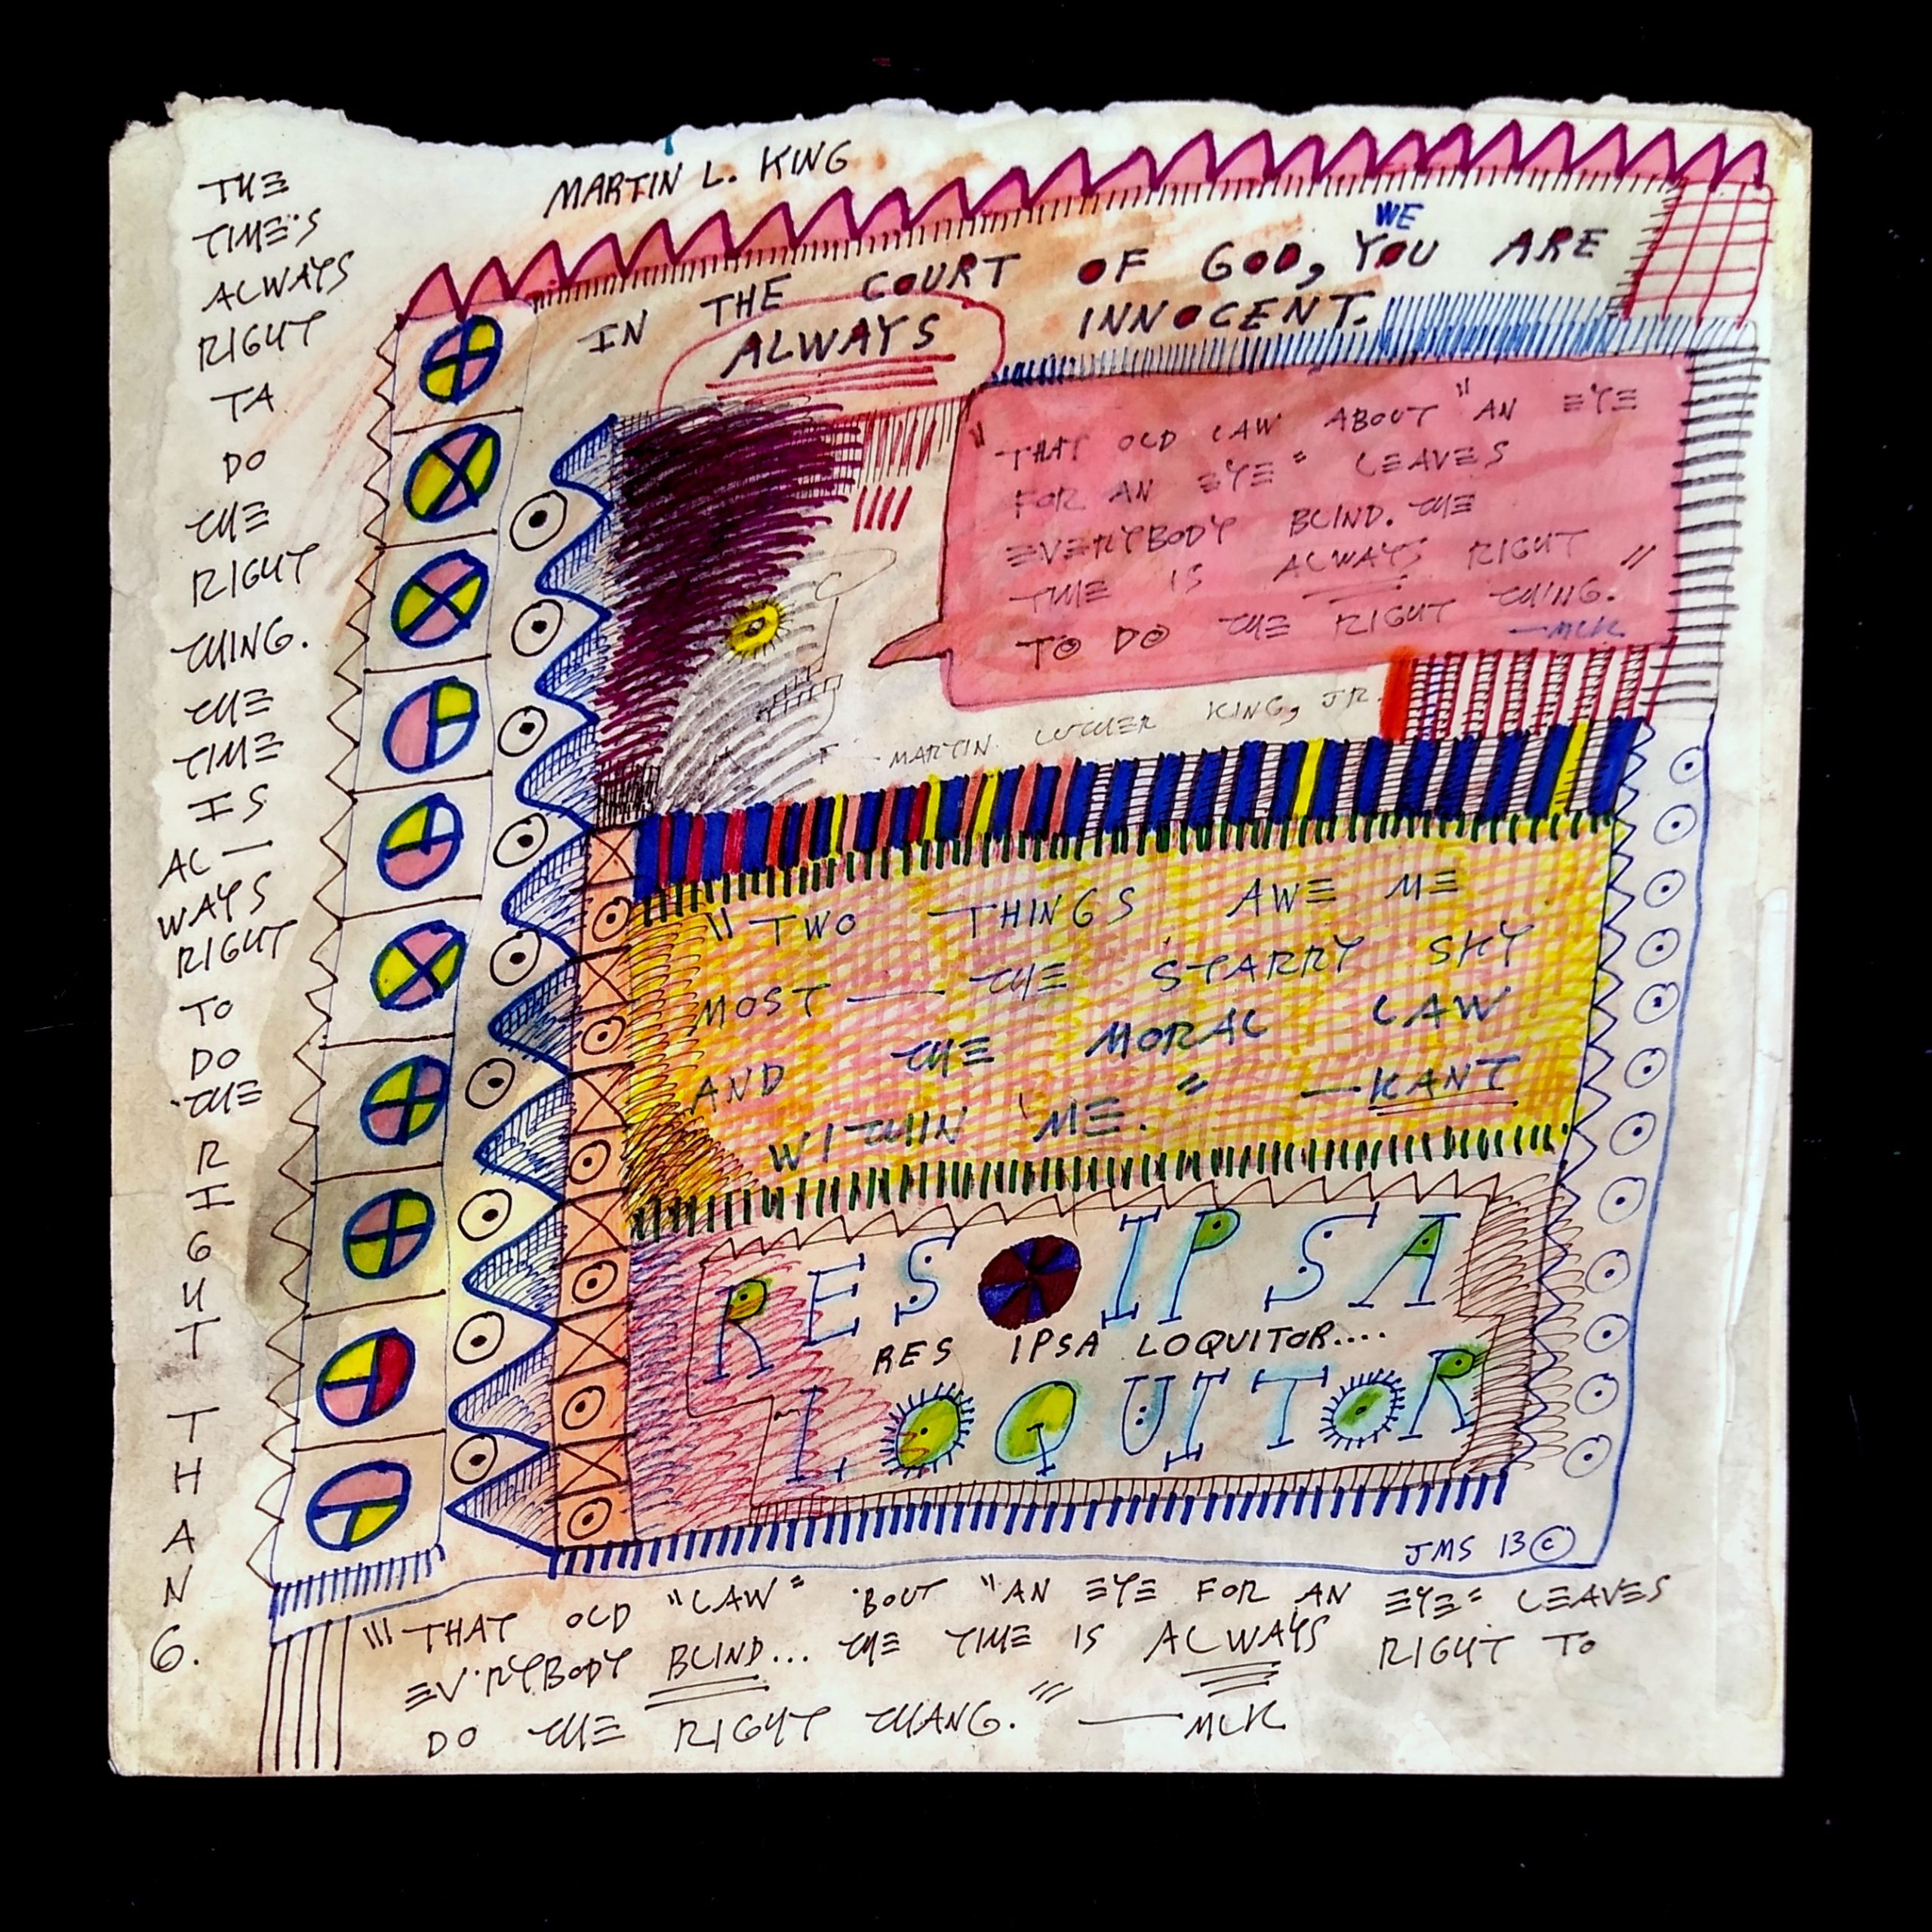 THE
TIME'S
ALWAYS
RIGHT
TA
DO
THE
RIGHT
THING.
THE
TIME
IS
AL—
WAYS
RIGHT
TO
DO
THE
R
I
G
H
T
T
H
A
N
G.
MARTIN L. KING
WE
IN THE COURT OF GOD, YOU ARE
ALWAYS INNOCENT.
"THAT OLD LAW ABOUT "AN EYE
FOR AN EYE" LEAVES
EVERYBODY BLIND. THE
TIME IS ALWAYS RIGHT
TO DO THE RIGHT THING."
—MLK
— MARTIN LUTHER KING, JR.
"TWO THINGS AWE ME
MOST — THE STARRY SKY
AND THE MORAL LAW
WITHIN ME." —KANT
RES IPSA
RES IPSA LOQUITOR....
LOQUITOR
JMS 13 ©
"'THAT OLD "LAW" 'BOUT "AN EYE FOR AN EYE" LEAVES
EV'RYBODY BLIND... THE TIME IS ALWAYS RIGHT TO
DO THE RIGHT THANG.'" —MLK